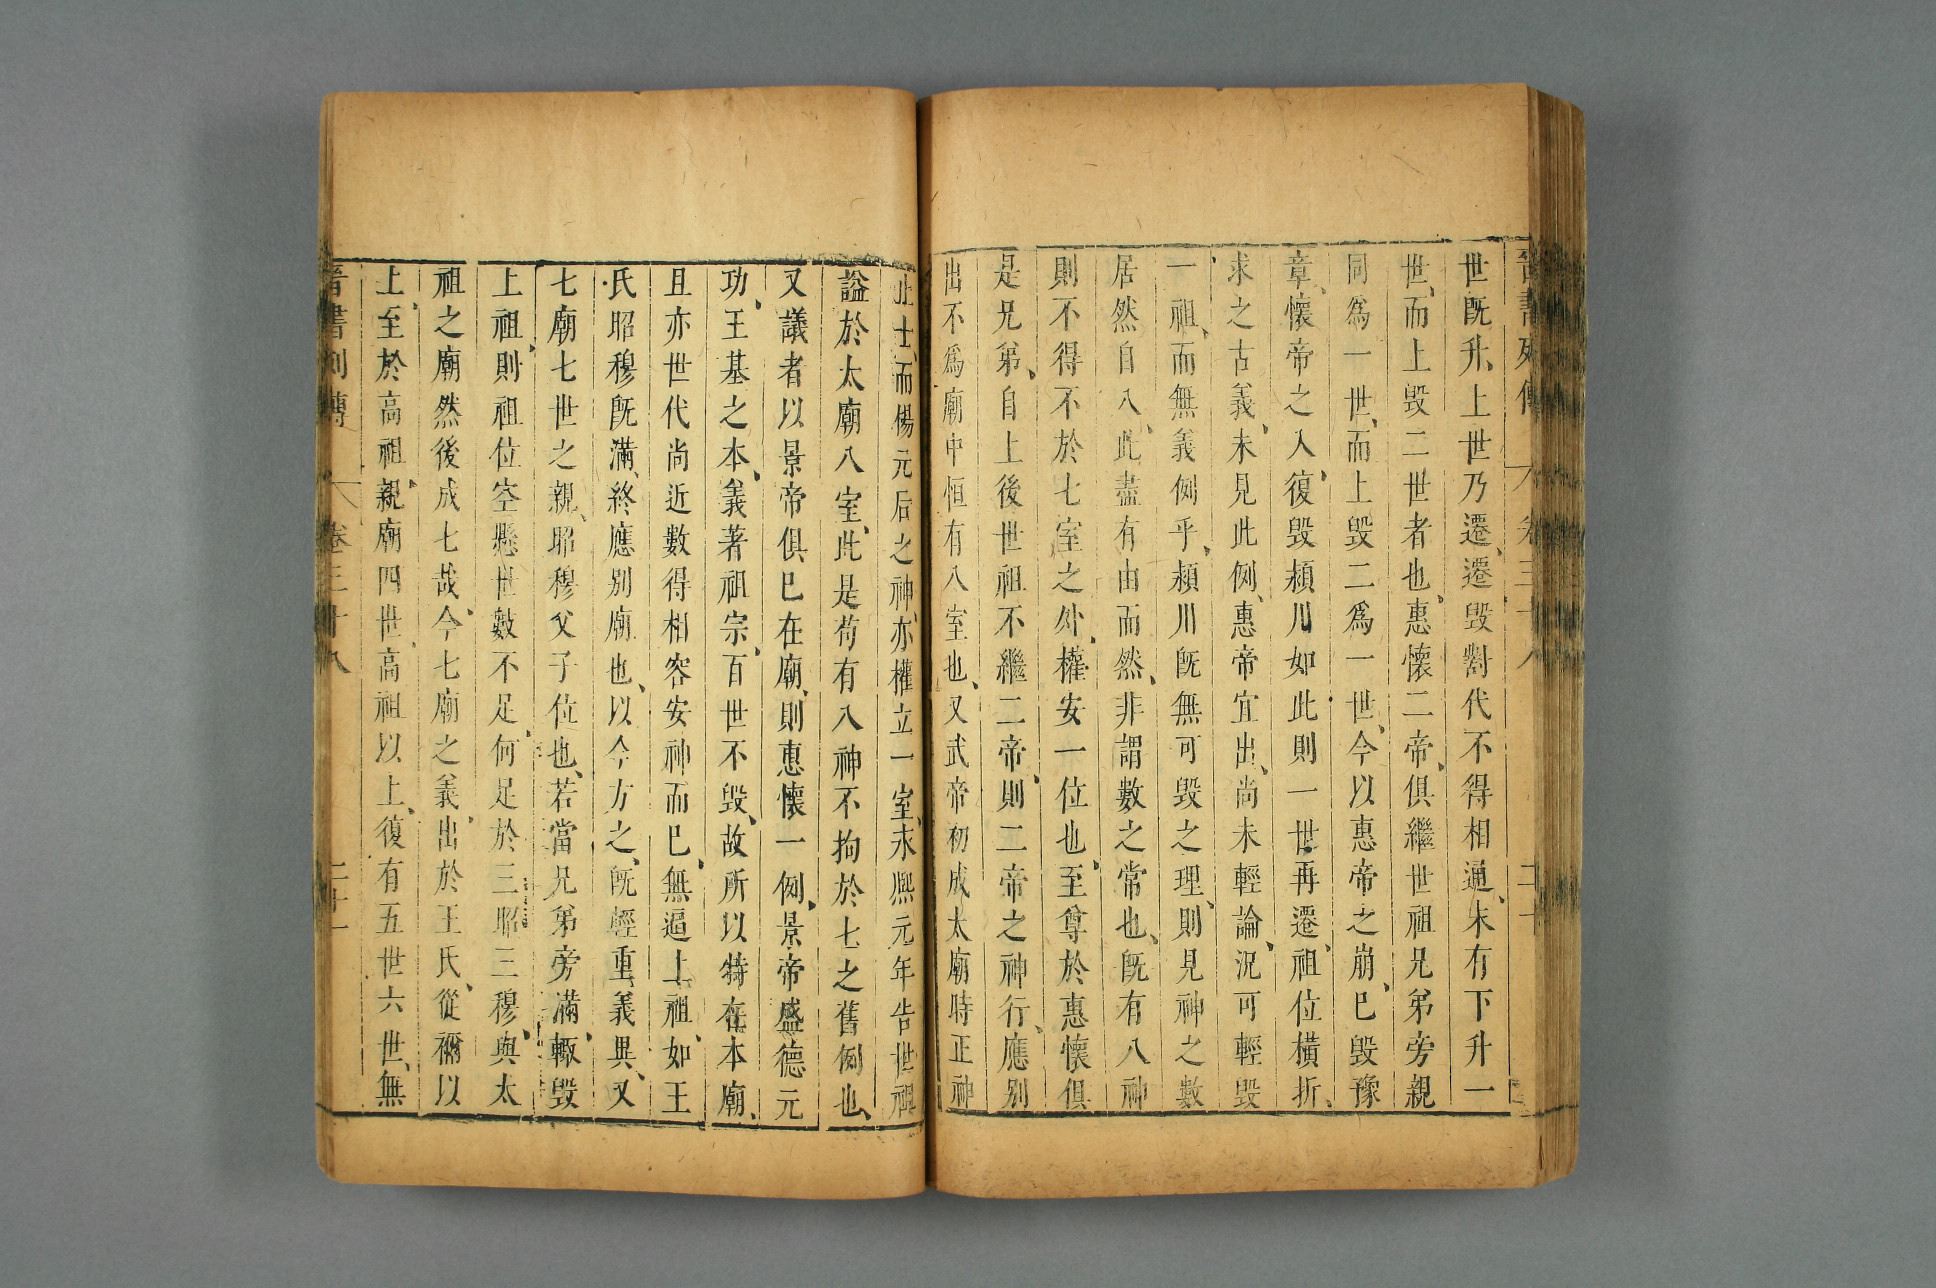 晉書列傳 卷三十八 二十
世既升、上世乃遷、遷毀對代不得相通、未有下升一
世、而上毀二世者也、惠懷二帝、俱繼世祖兄弟旁親
同爲一世、而上毀二爲一世、今以惠帝之崩、巳毀豫
章、懷帝之入、復毀潁川如此則一世再遷、祖位橫折、
求之古義、未見此例、惠帝宜出、尚未輕論、況可輕毀
一祖、而無義例乎、潁川既無可毀之理、則見神之數
居然自八、此盡有由而然、非謂數之常也、既有八神
則不得不於七室之外、權安一位也、至尊於惠懷俱
是兄弟、自上後世祖不繼二帝、則二帝之神行、應別
出不爲廟中恒有八室也、又武帝初成太廟時正神
止七、而楊元后之神、亦權立一室、永熙元年告世祖
謚於太廟八室、此是苟有八神不拘於七之舊例也、
又議者以景帝俱巳在廟、則惠懷一例、景帝盛德元
功、王基之本、義著祖宗、百世不毀、故所以特在本廟、
且亦世代尚近數得相容安神而巳、無逼上祖、如王
氏昭穆既滿、終應別廟也、以今方之、既輕重義異、又
七廟七世之親、昭穆父子位也、若當兄弟旁滿、輒毀
上祖、則祖位空懸世數不足、何足於三昭三穆、與太
祖之廟然後成七哉、今七廟之義、出於王氏、從禰以
上至於高祖、親廟四世、高祖以上、復有五世六世、無
晉書列傳 卷三十八 二十一